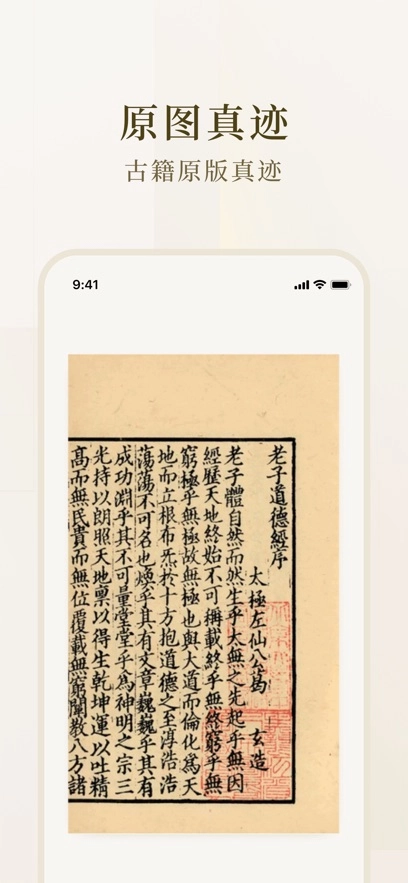 原图真迹
古籍原版真迹
9:41
老子道德經序
太極左仙公葛 玄造
老子體自然而然生乎太無之先起乎無因
經歷天地終始不可稱載終乎無終窮乎無
窮極乎無極故無極也與大道而倫化為天
地而立根布炁於十方抱道德之至淳浩浩
蕩蕩不可名也煥乎其有文章巍巍乎其有
成功淵乎其不可量堂堂乎為神明之宗三
光持以朗照天地稟以得生乾坤運以吐精
高而無民貴而無位覆載無窮闡教八方諸